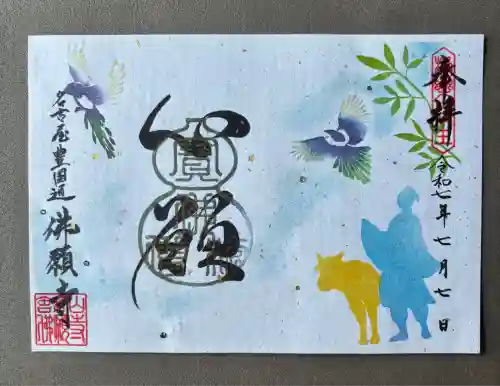 奉拝
令和七年七月七日
心願
名古屋豊国通
佛願寺